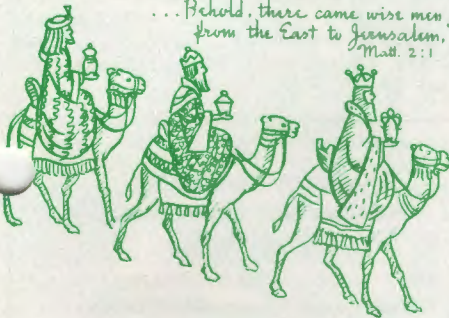 ...Behold, there came wise men
from the East to Jerusalem,
Matt. 2:1